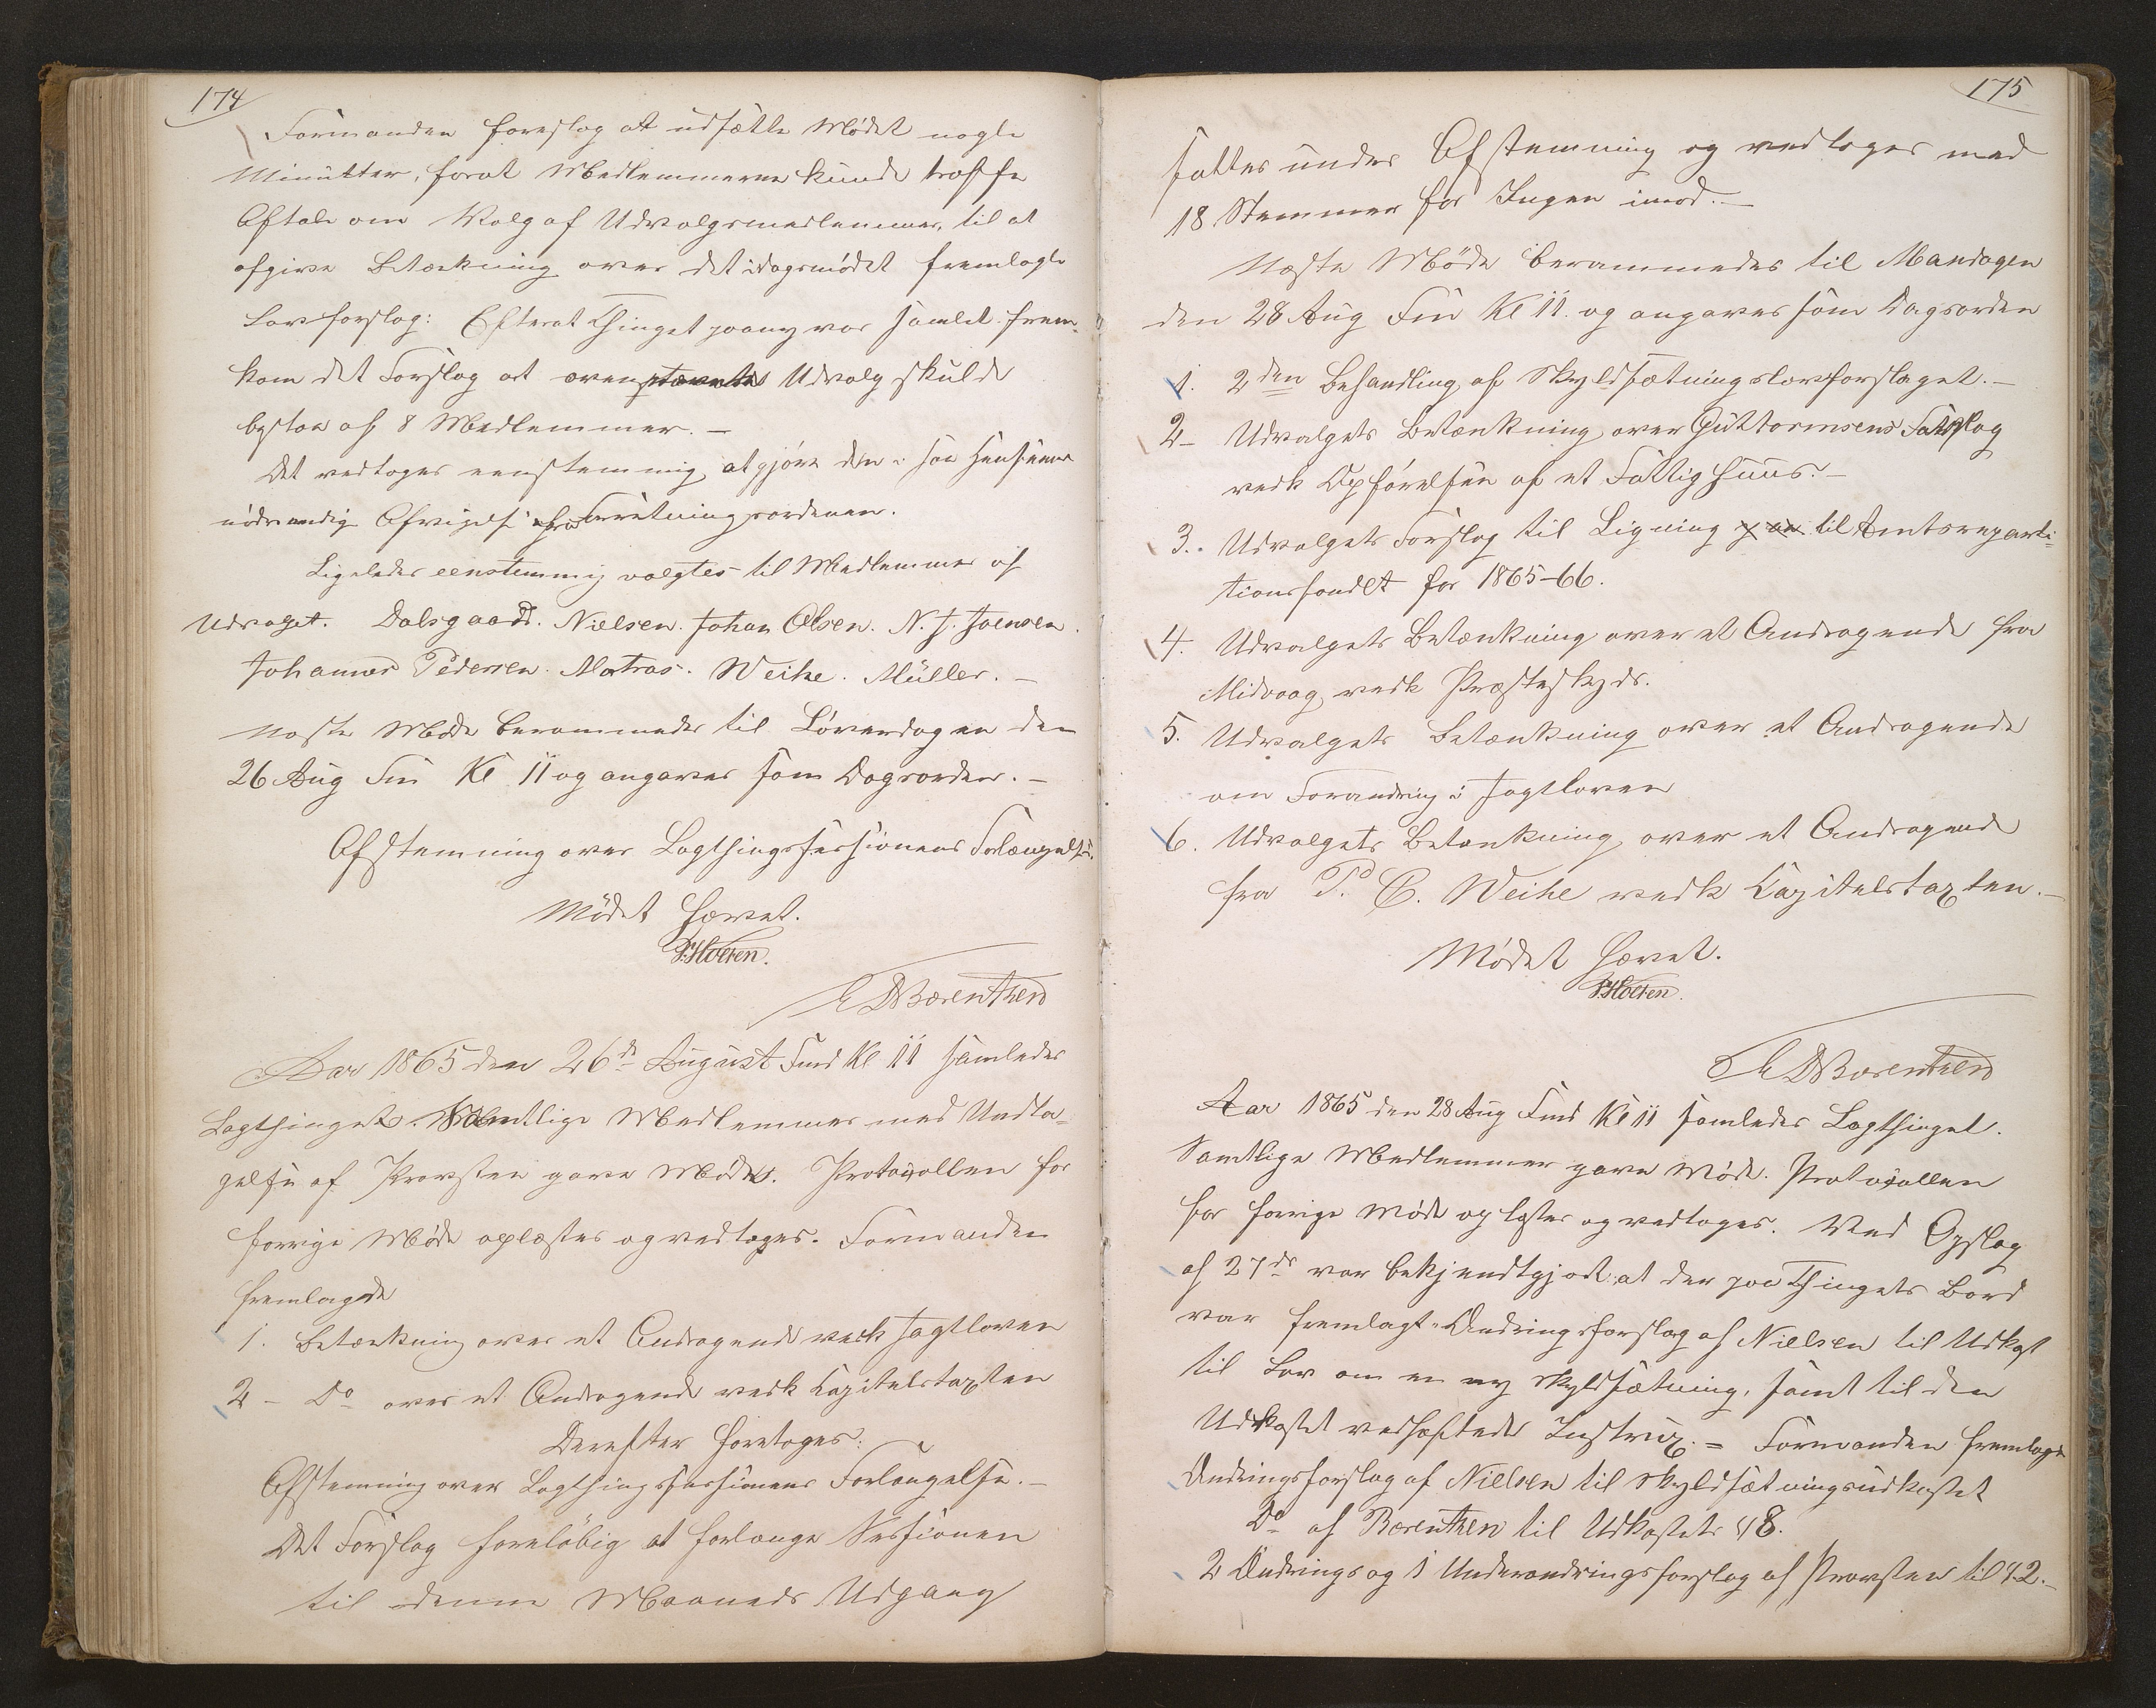 174
Formanden foreslog at udsætte Mødet nogle
Minutter, forat Medlemmerne kunde træffe
Aftale om Valg af Udvalgsmedlemmer, til at
afgive Betænkning over det i Dagsmødet fremlagte
Lovforslag: Efterat Thinget paany var samlet frem-
kom det Forslag at ovennævnte Udvalg skulde
bestaa af 8 Medlemmer. —
Det vedtoges eenstemmig at gjøre den i saa Henseende
nødvendig Afvigelse fra Forretningsordenen.
Ligeledes eenstemmig valgtes til Medlemmer af
Udvalget. Dalsgaard. Nielsen. Johan Olsen. N. J. Joensen.
Johannes Pedersen. Matras. Weihe. Müller. —
Næste Møde berammedes til Løverdagen den
26 Aug Fm Kl 11 og angaves som Dagsorden. —
Afstemning over Lagthingssessionens Forlængelse.
Mødet hævet.
HDBærentsen
Aar 1865 den 26de August Fmd Kl 11 samledes
Lagthinget. Samtlige Medlemmer med Undta-
gelse af Provsten gave Møde. Protocollen for
forrige Møde oplæstes og vedtoges. Formanden
fremlagde
1. Betænkning over et Andragende vedk Jagtloven
2 - Do over et Andragende vedk Capitelstaxten
Derefter foretoges:
Afstemning over Lagthingssessionens Forlængelse. —
Det Forslag foreløbig at forlænge Sessionen
til denne Maaneds Udgang
175
sattes under Afstemning og vedtoges med
18 Stemmer for Ingen imod. —
Næste Møde berammedes til Mandagen
den 28 Aug Fm Kl 11. og angaves som Dagsorden
1. 2den Behandling af Skyldsætningslovforslaget. —
2 - Udvalgets Betænkning over Guttormsens Forslag
vedk Opførelsen af et Fattighuus. —
3. Udvalgets Forslag til Ligning til Amtsreparti-
tionsfondet for 1865-66.
4. Udvalgets Betænkning over et Andragende fra
Midvaag vedk Præsteskyds.
5. Udvalgets Betænkning over et Andragende
om Forandring i Jagtloven
6. Udvalgets Betænkning over et Andragende
fra P. C. Weihe vedk Capitelstaxten. —
Mødet hævet.
HDBærentsen
Aar 1865 den 28 Aug Fmd Kl 11 samledes Lagthinget.
Samtlige Medlemmer gave Møde. Protocollen
for forrige Møde oplæstes og vedtoges. Ved Opslag
af 27de var bekjendtgjort at der paa Thingets Bord
var fremlagt Ændringsforslag af Nielsen til Udkast
til Lov om en ny Skyldsætning, samt til den
Udkastet vedhæftede Instrux. = Formanden fremlagde
Ændringsforslag af Nielsen til Skyldsætningsudkastet
Do af Bærentsen til Udkastets § 8.
2 Ændrings og 1 Underændringsforslag af Provsten til § 2. —